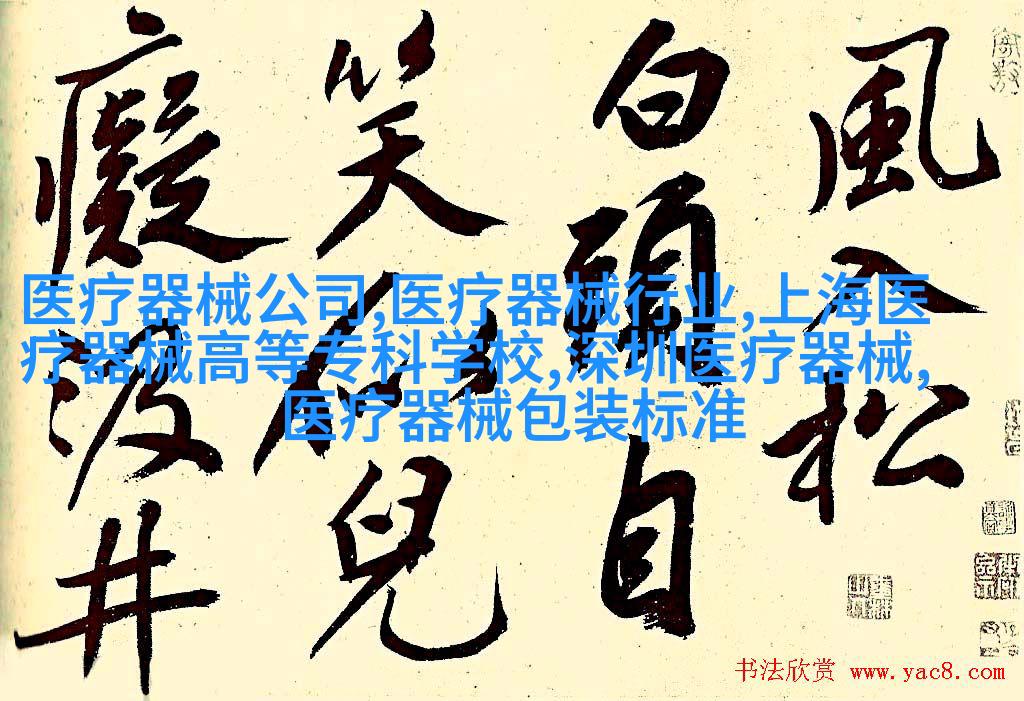 風入松
白頭自
笑似兒
癡汲井
医疗器械公司,医疗器械行业,上海医
疗器械高等专科学校,深圳医疗器械,
医疗器械包装标准
书法欣赏 www.yac8.com